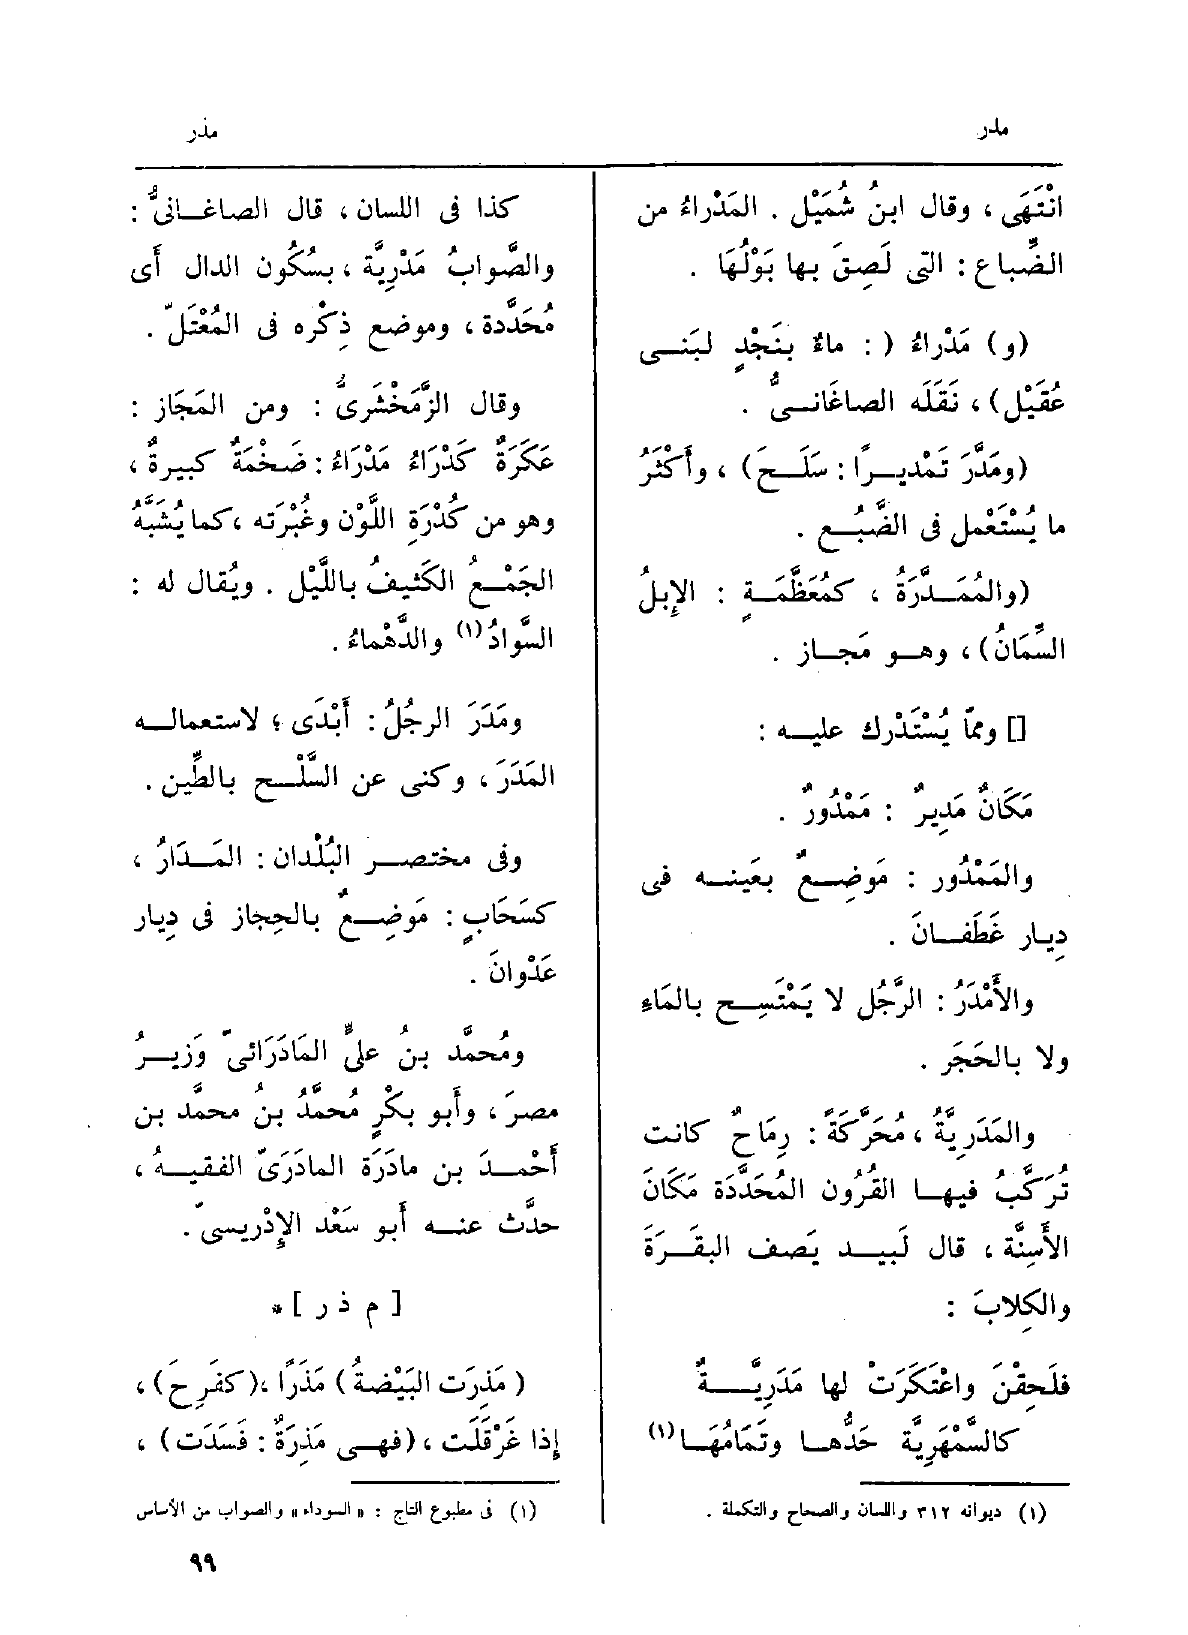 مدر
مذر
انْتَهَى ، وقال ابنُ شُمَيْل . المَدْراءُ من
الضِّباع : التى لَصِقَ بها بَوْلُهَا .
(و) مَدْراءُ ( : ماءٌ بنَجْدٍ لبَنى
عُقَيْل) ، نَقَلَه الصاغَانىُّ .
(ومَدَّرَ تَمْديرًا : سَلَحَ) ، وأَكْثَرُ
ما يُسْتَعْمل فى الضَّبُع .
(والمُمَدَّرَةُ ، كمُعَظَّمَةٍ : الإِبلُ
السِّمَانُ) ، وهو مَجاز .
[] وممّا يُسْتَدْرك عليه :
مَكَانٌ مَدِيرٌ : مَمْدُورٌ .
والمَمْدُور : مَوضِعٌ بعَينه فى
دِيار غَطَفانَ .
والأَمْدَرُ : الرَّجُل لا يَمْتَسِح بالمَاءِ
ولا بالحَجَر .
والمَدَرِيَّةُ ، مُحَرَّكَةً : رِمَاحٌ كانت
تُرَكَّبُ فيها القُرُون المُحَدَّدَة مَكَانَ
الأَسِنَّة ، قال لَبيد يَصف البقَرَة
والكِلابَ :
فلَحِقْنَ واعْتَكَرَتْ لها مَدَرِيَّةٌ
كالسَّمْهَرِيَّة حَدُّها وتَمَامُهَا (١)
(١) ديوانه ٣١٢ واللسان والصحاح والتكملة .
كذا فى اللسان ، قال الصاغانىُّ :
والصَّوابُ مَدْرِيَّة ، بسُكُون الدال أَى
مُحَدَّدة ، وموضع ذِكْره فى المُعْتَلّ .
وقال الزَّمَخْشَرىُّ : ومن المَجَاز :
عَكَرَةٌ كَدْرَاءُ مَدْرَاءُ : ضَخْمَةٌ كبيرةٌ ،
وهو من كُدْرَةِ اللَّوْن وغُبْرَته ، كما يُشَبَّهُ
الجَمْعُ الكَثيفُ باللَّيْل . ويُقال له :
السَّوادُ (١) والدَّهْماءُ .
ومَدَرَ الرجُلُ : أَبْدَى ؛ لاستعماله
المَدَرَ ، وكنى عن السَّلْح بالطِّين .
وفى مختصر البُلْدان : المَدَارُ ،
كسَحَابٍ : مَوضِعٌ بالحِجاز فى دِيار
عَدْوانَ .
ومُحمَّد بنُ علىٍّ المَادَرَائىّ وَزيرُ
مصرَ ، وأَبو بكْرٍ مُحمَّدُ بنُ محمَّد بن
أَحْمدَ بن مادَرَة المادَرَىّ الفقيهُ ،
حدَّث عنه أَبو سَعْد الإِدْريسىّ .
[ م ذ ر ] *
( مَذِرَت البَيْضةُ ) مَذَرًا ، (كفَرِحَ) ،
إِذا غَرْقَلَت ، (فهى مَذِرَةٌ : فَسَدَت) ،
(١) فى مطبوع التاج : « السوداء » والصواب من الأساس
٩٩